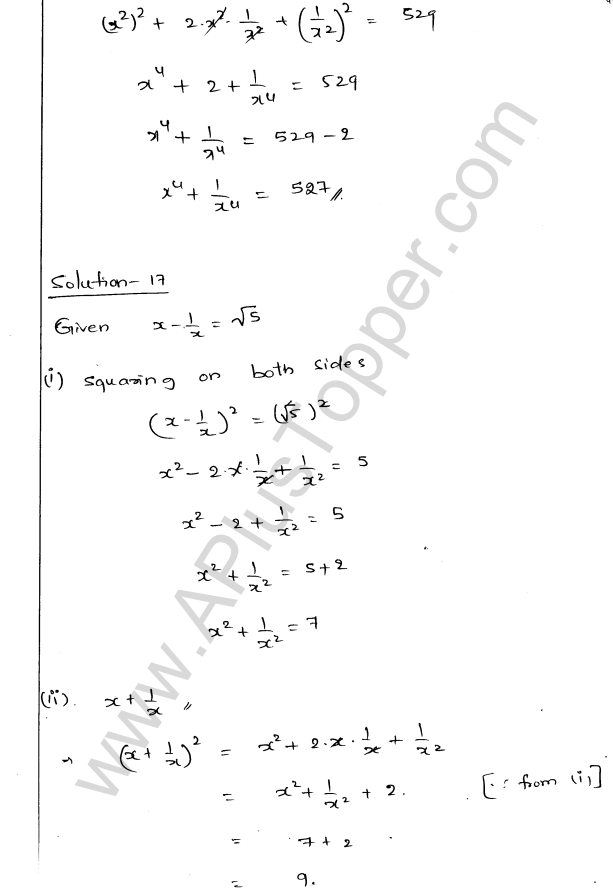 (x²)² + 2·x²·1/x² + (1/x²)² = 529
x⁴ + 2 + 1/x⁴ = 529
x⁴ + 1/x⁴ = 529 - 2
x⁴ + 1/x⁴ = 527 //.
Solution- 17
Given x - 1/x = √5
(i) squaring on both sides
(x - 1/x)² = (√5)²
x² - 2·x·1/x + 1/x² = 5
x² - 2 + 1/x² = 5
x² + 1/x² = 5+2
x² + 1/x² = 7
(ii). x + 1/x //
(x + 1/x)² = x² + 2·x·1/x + 1/x²
= x² + 1/x² + 2. [∵ from (i)]
= 7 + 2
= 9.
www.APlusTopper.com